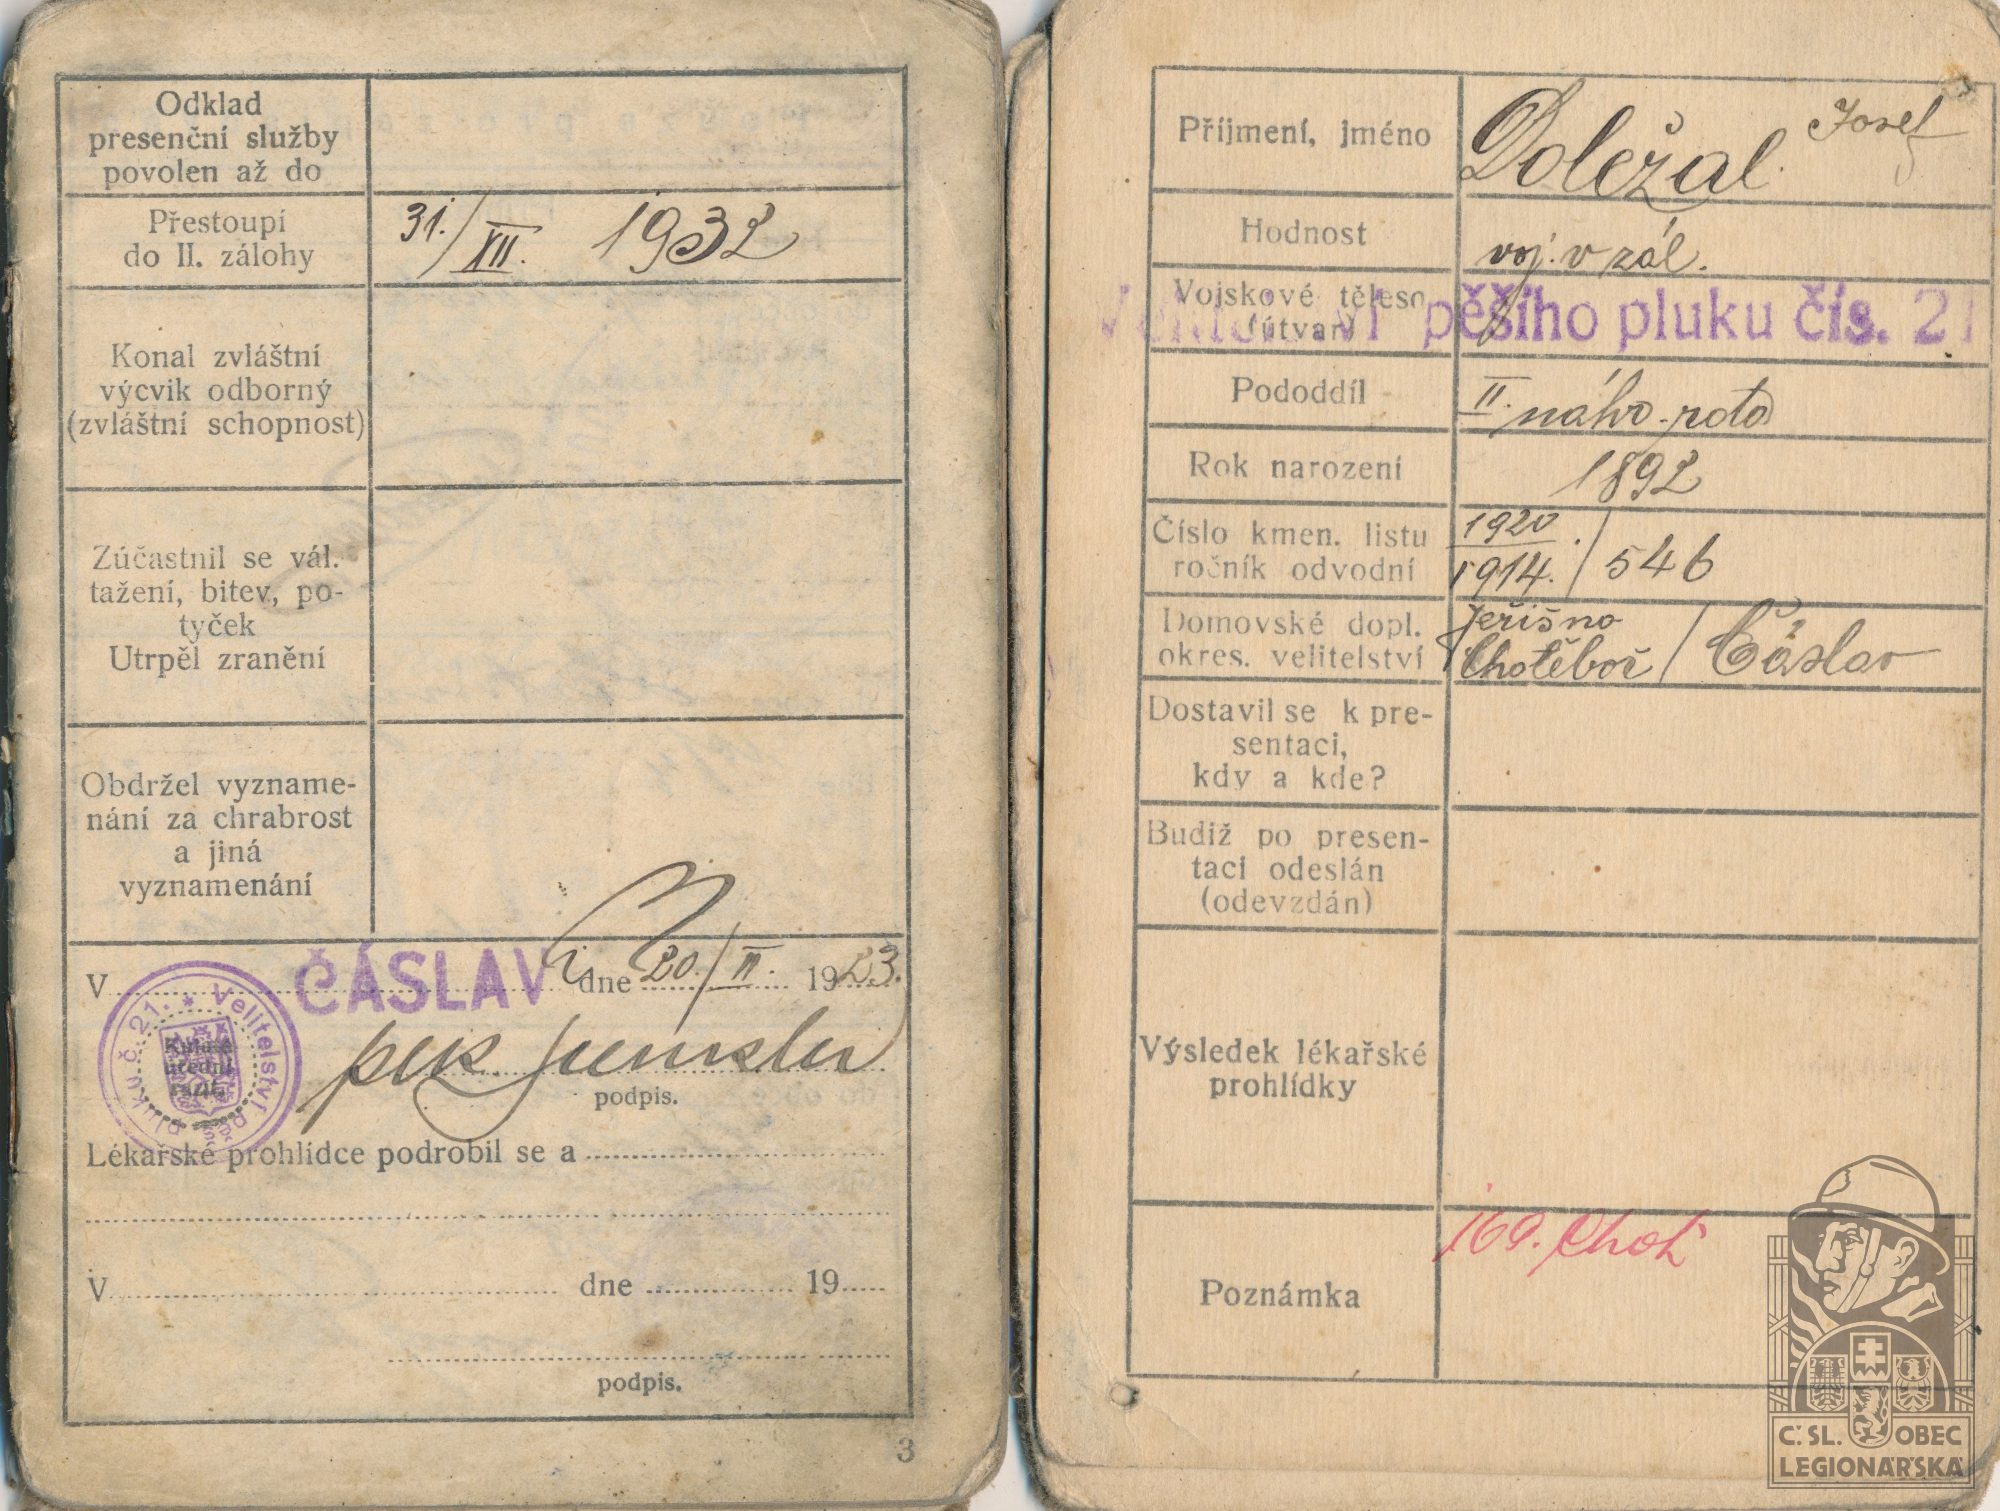 Odklad
presenční služby
povolen až do
Přestoupí
do II. zálohy
31./XII. 1932
Konal zvláštní
výcvik odborný
(zvláštní schopnost)
Zúčastnil se vál.
tažení, bitev, po-
tyček
Utrpěl zranění
Obdržel vyzname-
nání za chrabrost
a jiná
vyznamenání
V ČÁSLAV dne 20./II. 1923.
* Velitelství pěš. pluku č. 21.
Kulaté
úřední
razít.
podpis.
Lékařské prohlídce podrobil se a
V dne 19
podpis.
3
Příjmení, jméno
Doležal Josef
Hodnost
voj. v zál.
Vojskové těleso
(útvar)
Velitelství pěšího pluku čís. 21
Pododdíl
II. náhr. rota
Rok narození
1892
Číslo kmen. listu
ročník odvodní
1920
1914. / 546
Domovské dopl.
okres. velitelství
Jeřišno
Chotěboř / Čáslav
Dostavil se k pre-
sentaci,
kdy a kde?
Budiž po presen-
taci odeslán
(odevzdán)
Výsledek lékařské
prohlídky
Poznámka
169. Chot
Č. SL. OBEC
LEGIONÁŘSKÁ